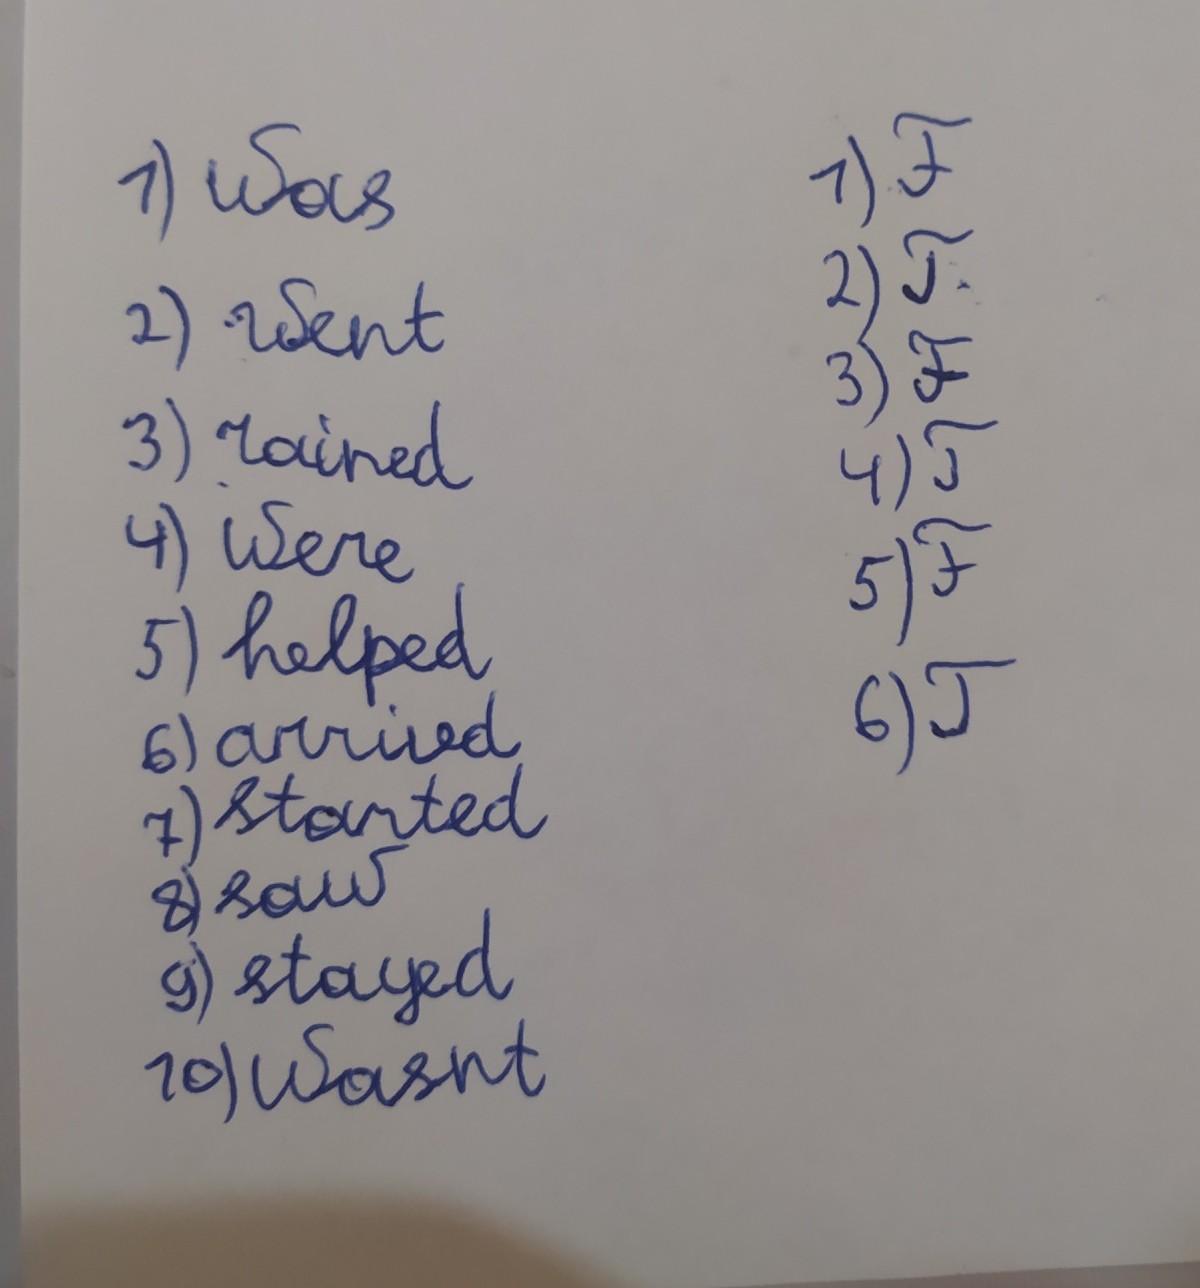 1) Was
2) Went
3) rained
4) Were
5) helped
6) arrived
7) started
8) saw
9) stayed
10) Wasnt
1) F
2) T.
3) F
4) T
5) F
6) T